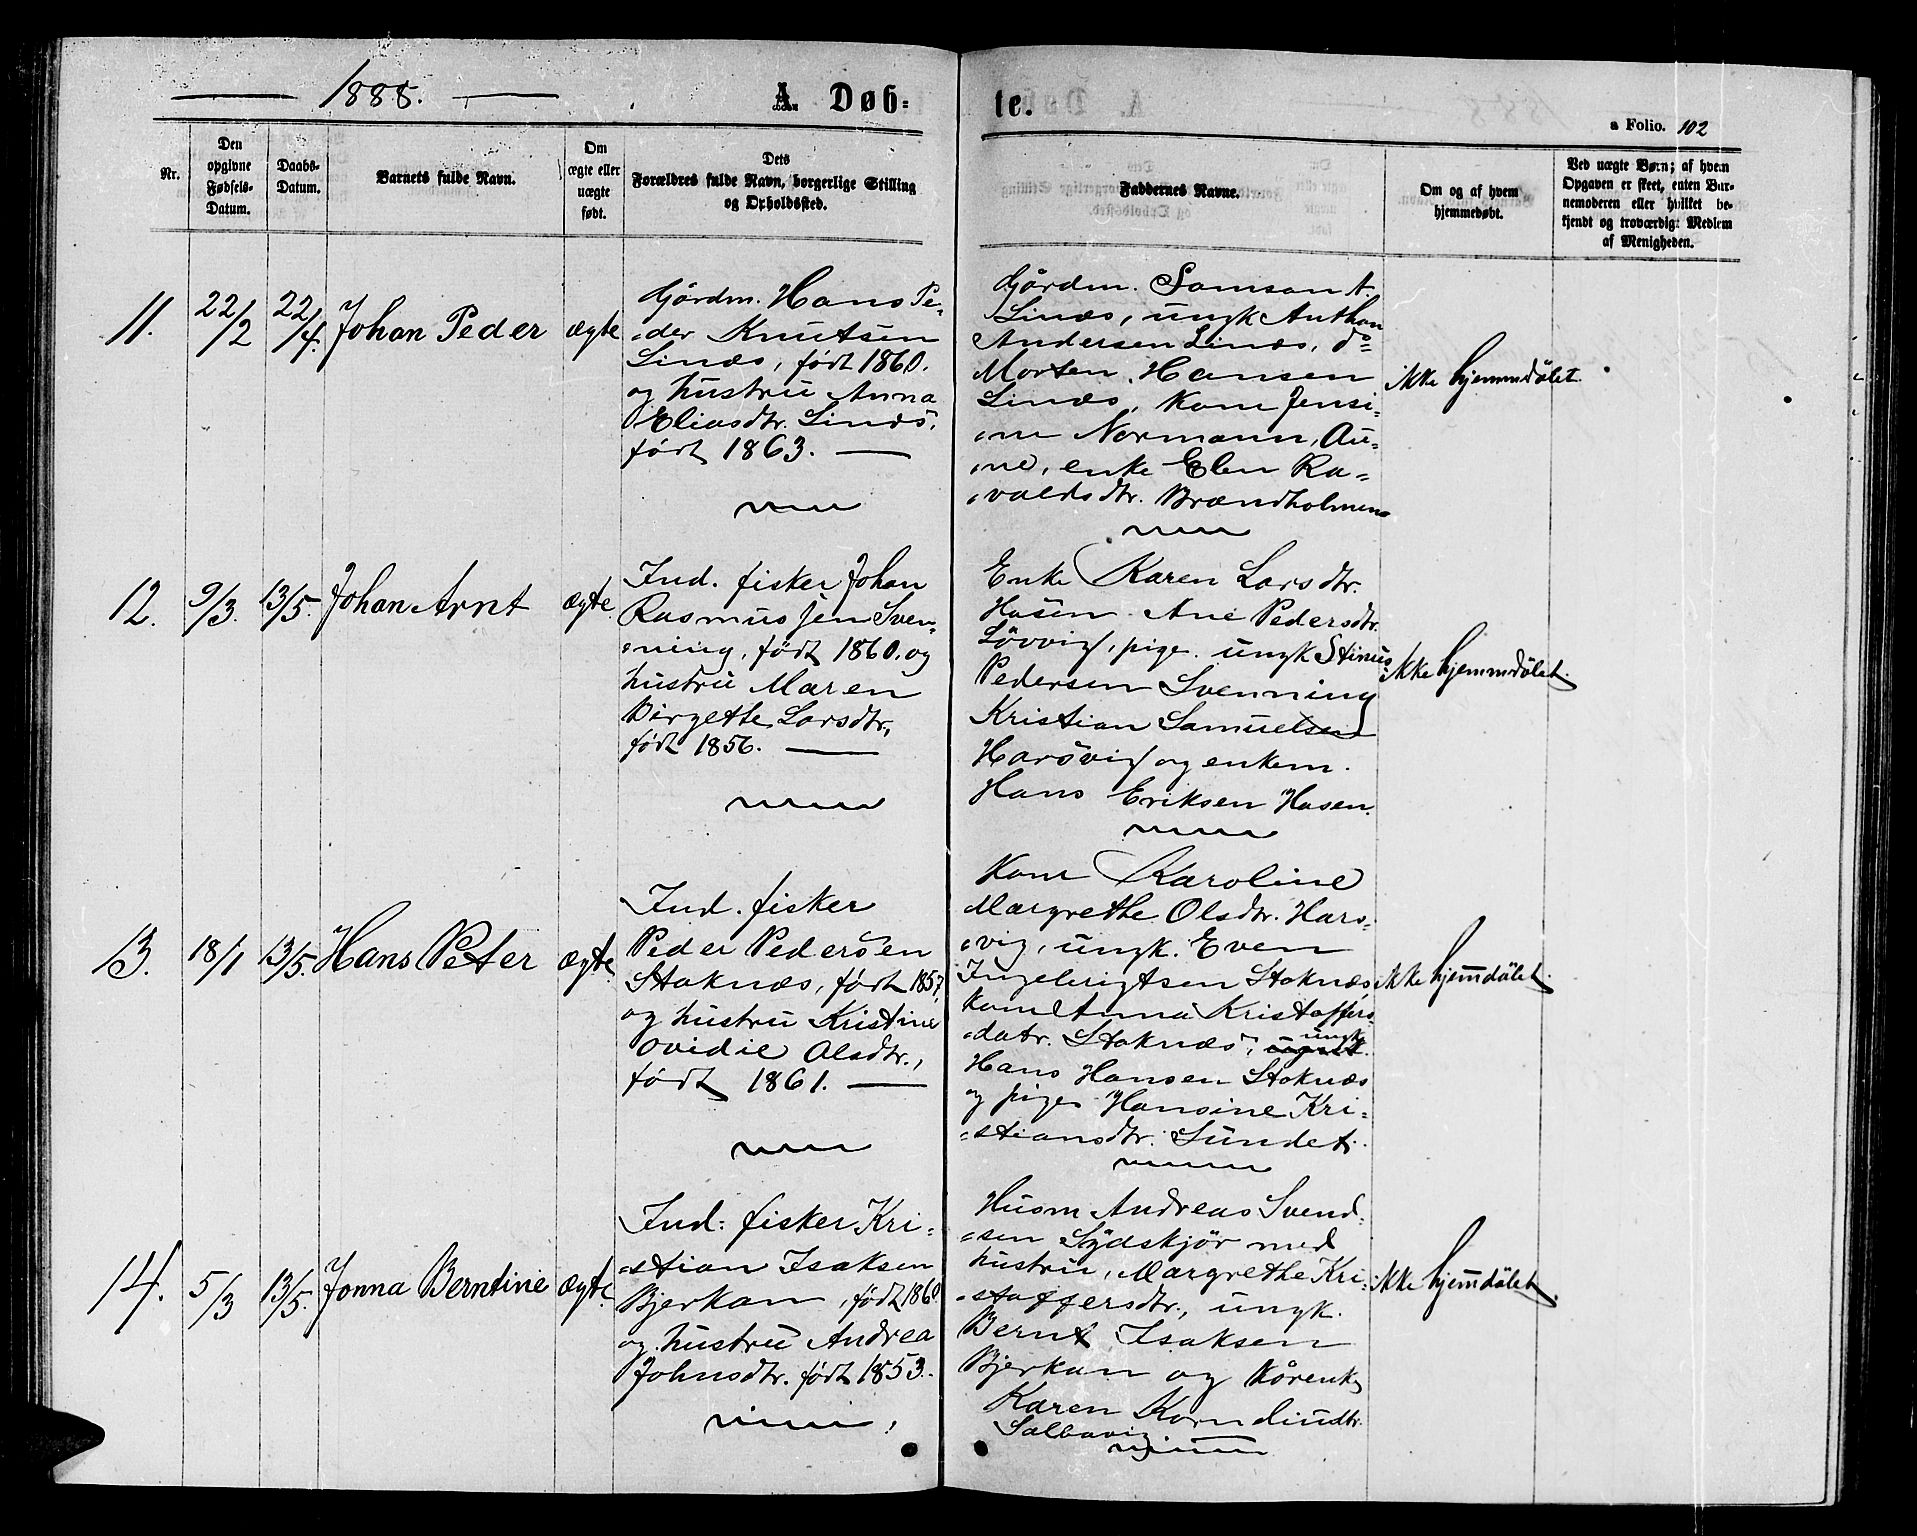 1888.
A Døb=
te.
Folio. 102
Nr.
Den
opgivne
Fødsels-
Datum.
Daabs-
Datum.
Barnets fulde Navn.
Om
ægte eller
uægte
født.
Dets
Forældres fulde Navn, borgerlige Stilling
og Opholdssted.
Faddernes Navne.
Om og af hvem
hjemmedøbt.
Ved uægte Børn; af hvem
Opgaven er skeet, enten Bar-
nemoderen eller hvilket be-
kjendt og troværdigt Medlem
af Menigheden.
11.
22/2
22/4.
Johan Peder
ægte
Gårdm. Hans Pe=
=der Knutsen
Linæs, født 1860.
og hustru Anna
Eliasdtr. Linæs,
født 1863. —
Gårdm. Samson A.
Linæs, ungk Anthon
Andersen Linæs, do
Morten Hansen
Linæs, kone Jensi=
=ne Normann, Au=
=ne, enke Elen Ra=
=valdsdtr. Brændholmen
ikke hjemmdøbt.
12.
9/3.
13/5.
Johan Arnt
ægte.
Ind. fisker Johan
Rasmus Jen Sven=
=ning, født 1860. og
hustru Maren
Birgette Larsdtr,
født 1856. —
Enke Karen Larsdtr.
Hasen. Ane Pedersdtr.
Løvvig, pige. ungk Stinus
Pedersen Svenning
Kristian Samuelsen
Harsvig og enkem.
Hans Eriksen Hasen.
ikke hjemmdøbt.
13.
18/1
13/5.
Hans Peter
ægte.
Ind. fisker
Peder Pedersen
Stoknæs, født 1857,
og hustru Kristine
Ovidie Olsdtr.,
født 1861. —
Kone Karoline
Margrethe Olsdtr. Hars=
=vig, ungk. Even
Ingebrigtsen Stoknæs,
kone Anna Kristoffers=
=datr. Stoknæs, ungk.
Hans Hansen Stoknæs
og pige Hansine Kri=
=stiansdtr. Sundet.
ikke hjemdøbt.
14.
5/3
13/5.
Jonna Berntine
ægte.
Ind: fisker Kri=
=stian Isaksen
Bjerkan, født 1860.
og hustru Andrea
Johnsdtr. født 1853.
Husm Andreas Svend=
=sen Sydskjør med
hustru, Margrethe Kri=
=stoffersdtr., ungk.
Bernt Isaksen
Bjerkan og kårenke
Karen Korneliusdtr.
Salbuvig
ikke hjemdøbt.